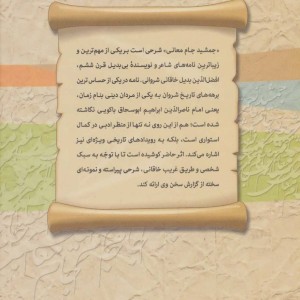 «جمشید جام معانی» شرحی است بر یکی از مهم‌ترین و
زیباترین نامه‌های شاعر و نویسندهٔ بی‌بدیل قرن ششم،
افضل‌الدین بدیل خاقانی شروانی. نامه در یکی از حساس‌ترین
برهه‌های تاریخ شروان به یکی از مردان دینی بنام زمان،
یعنی امام ناصرالدین ابراهیم ابوسحاق باکویی نگاشته
شده است؛ هم از این روی نه تنها از منظر ادبی در کمال
استواری است، بلکه به رویدادهای تاریخی ویژه‌ای نیز
اشاره می‌کند. اثر حاضر کوشیده است تا با توجّه به سبک
شخصی و طریق غریب خاقانی، شرحی پیراسته و نمونه‌ای
سخته از گزارش سخن وی ارائه کند.